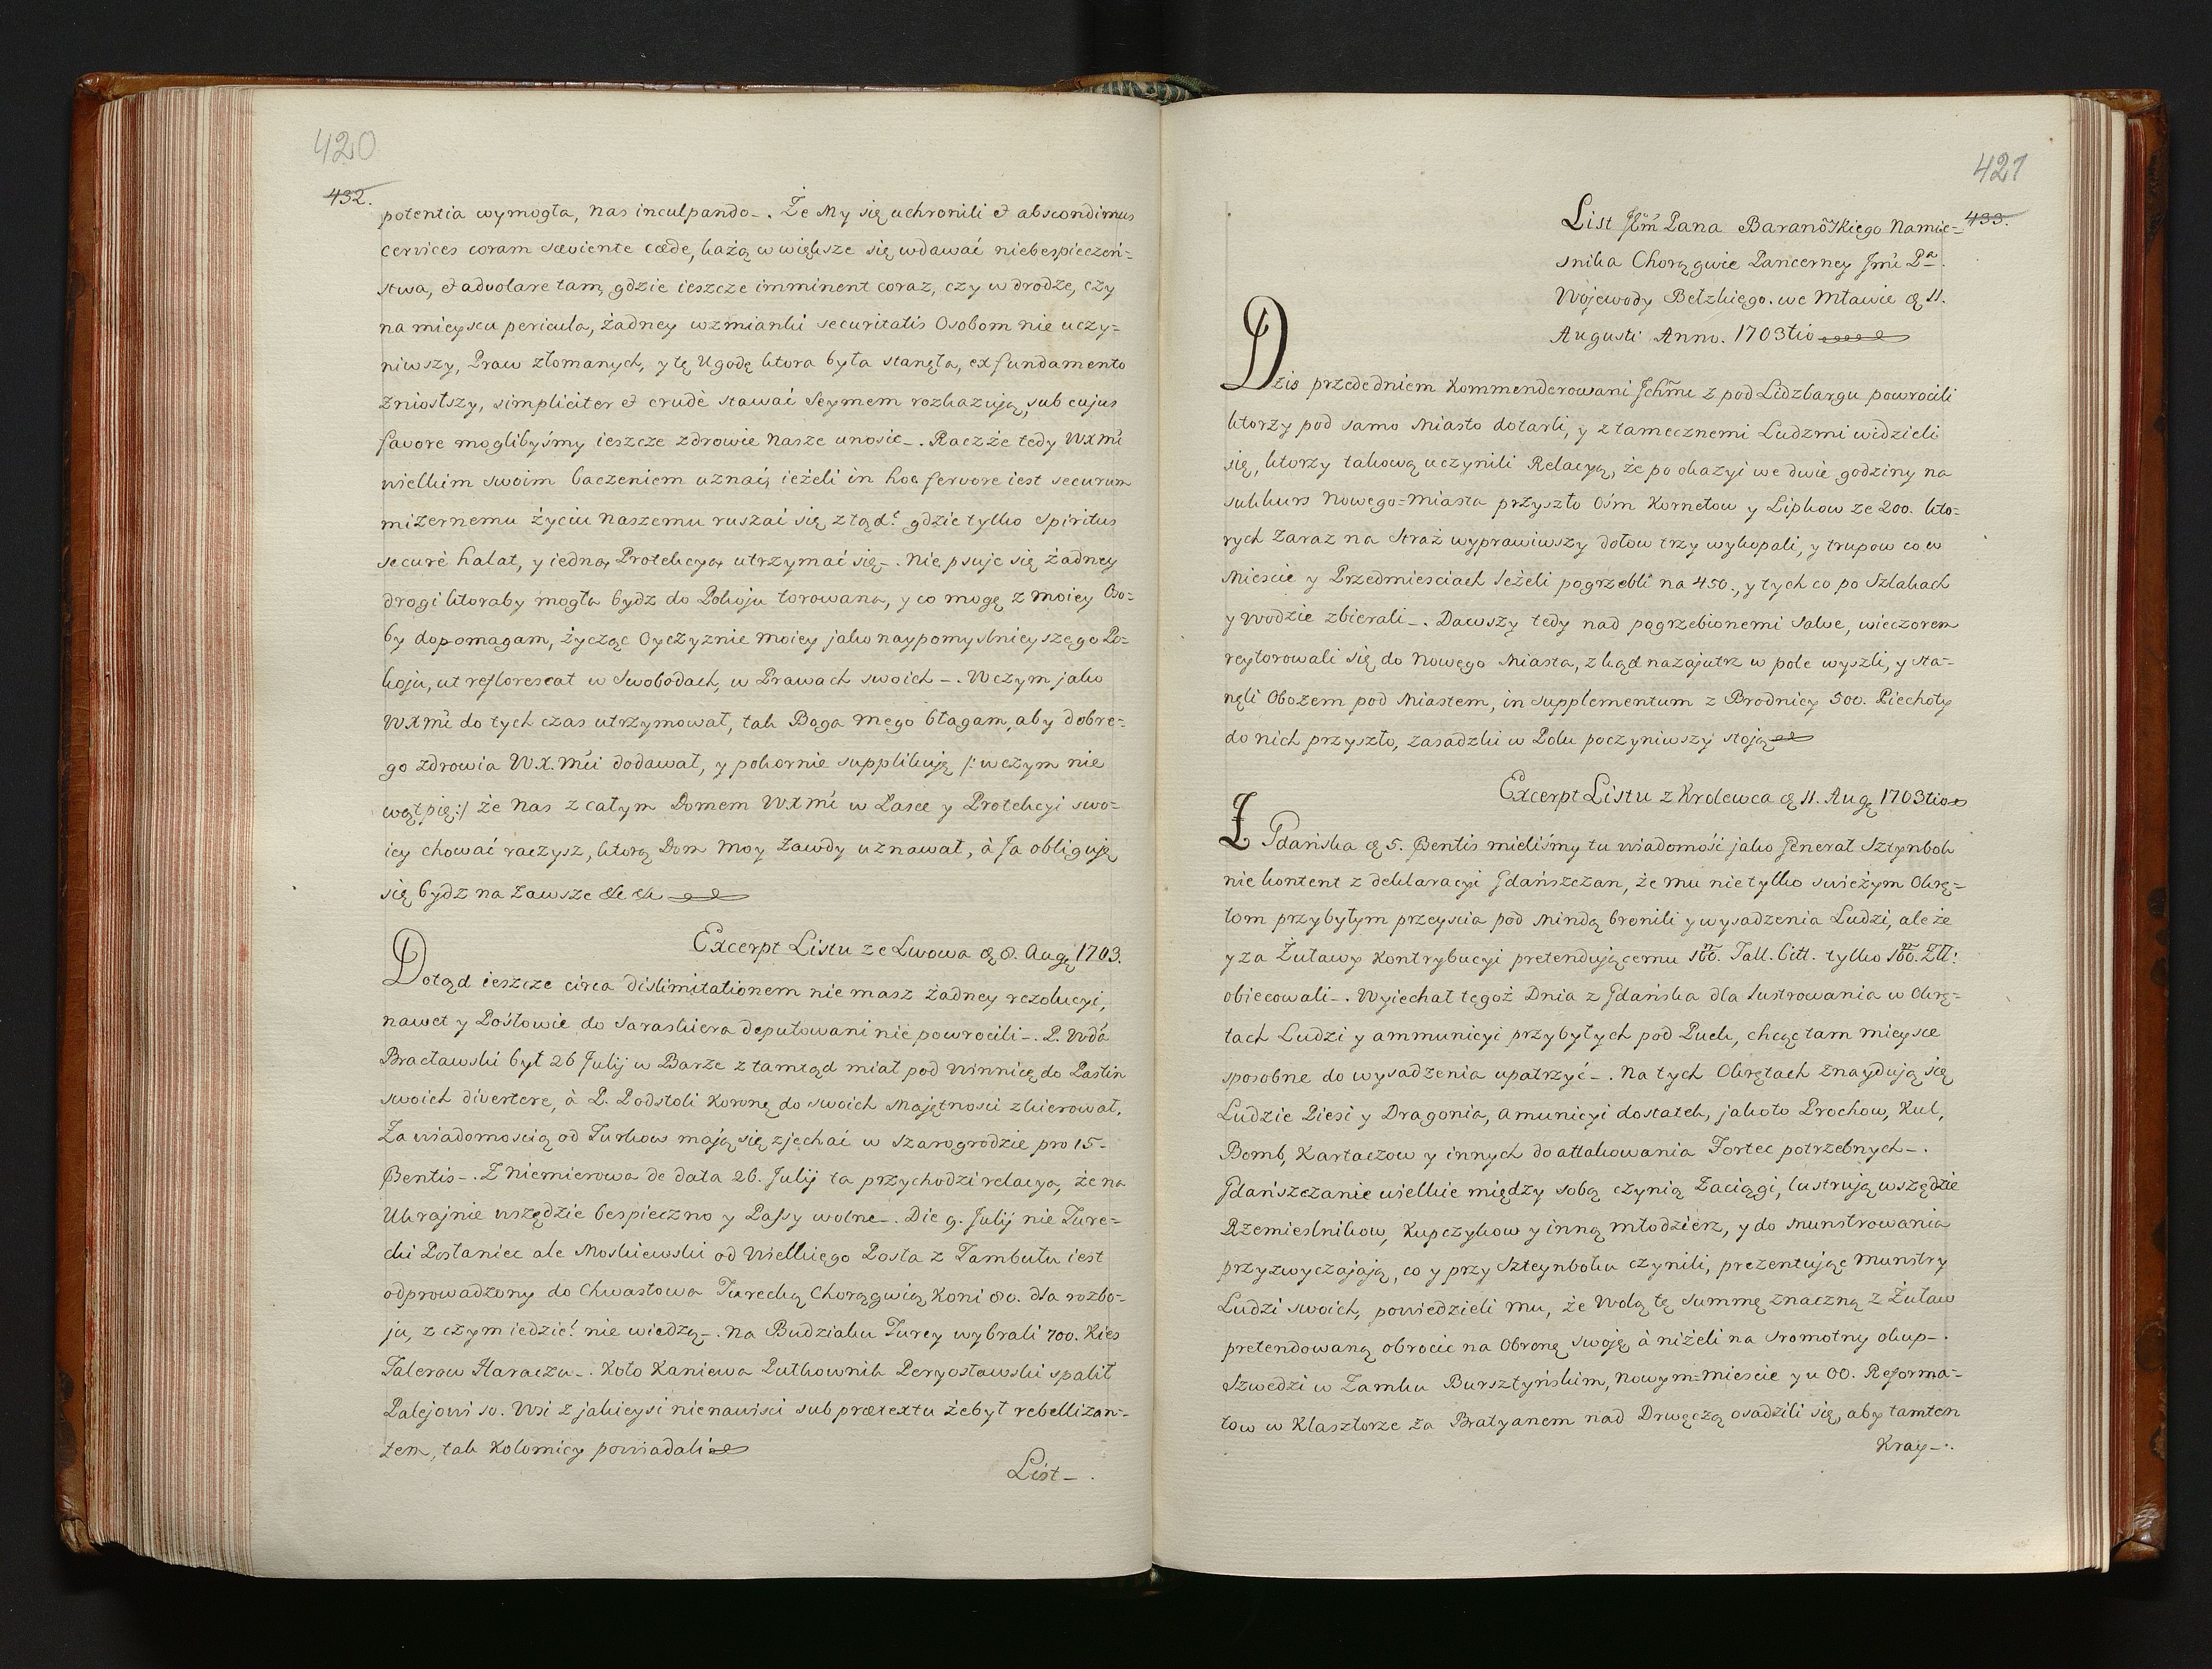 420
432.
potentia wymogła, nas inculpando_. Że My się uchronili et abscondimus
cervices coram sæviente cæde, każą w większe się wdawać niebespieczeń=
stwa, et advolare tam, gdzie ieszcze imminent coraz, czy w drodze, czy
na mieyscu pericula, żadney wzmianki securitatis Osobom nie uczy=
niwszy, Praw złomanych, y tę Ugodę ktora była stanęła, ex fundamento
zniosłszy, simpliciter et crudè stawać Seymem rozkazują, sub cujus
favore moglibyśmy ieszcze zdrowie Nasze unosic_. Raczże tedy WXMć
wielkim swoim baczeniem uznać, ieżeli in hoc fervore iest securum
mizernemu życiu Naszemu ruszać się ztąd? gdzie tylko Spiritus
securè halat, y iedną Protekcyą utrzymać się_. Nie psuje się żadney
drogi ktoraby mogła bydz do Pokoju torowana, y co mogę z moiey Oso=
by dopomagam, życząc Oyczyznie moiey jako naypomyslnieyszego Po=
koju, ut reflorescat w Swobodach, w Prawach swoich_. W czym jako
WXMć do tych czas utrzymował, tak Boga mego błagam, aby dobre=
go zdrowia W.X.Mći dodawał, y pokornie supplikuję /: w czym nie
wątpię :/ że Nas z całym Domem WXMć w Łasce y Protekcyi swo=
iey chować raczysz, ktorą Dom Moy zawdy uznawał, à Ja obliguję
się bydz na zawsze &c &c
Excerpt Listu ze Lwowa d. 8. Aug. 1703.
Dotąd ieszcze circa dislimitationem nie masz żadney rezolucyi,
nawet y Posłowie do Saraskiera deputowani nie powrocili_. P. Wdá
Bracławski był 26 Julij w Barze z tamtąd miał pod Winnicę do Pastin
swoich divertere, à P. Podstoli Koronę do swoich Majętnosci zkierował.
Za wiadomoscią od Turkow mają się zjechać w Szarogrodzie pro 15_
Præsentis_. Z Niemierowa de data 26. Julij ta przychodzi relacya, że na
Ukrajnie wszędzie bespieczno y Passy wolne_. Die 9. Julij nie Ture=
cki Posłaniec ale Moskiewski od Wielkiego Posła z Tambułu iest
odprowadzony do Chwastowa Turecką Chorągwią Koni 80. dla rozbo=
ju, z czym iedzie? nie wiedzą_. Na Budziaku Turcy wybrali 700. Kies
Talerow Haraczu_. Koło Kaniewa Pułkownik Peryosławski spalił
Palejowi 10. Wsi z jakieysi nienawisci sub prætextu żebył rebellizan=
tem, tak Kolomicy powiadali
List_.
421
433.
List Jm̃ Pana Baranowskiego Namie=
snika Chorągwie Pancerney Jmć Pa
Wojewody Bełzkiego. we Mławie d. 11.
Augusti Anno. 1703tio
Dzis przededniem Kommenderowani Jchm̃c z pod Lidzbargu powrocili
ktorzy pod samo Miasto dotarli, y z tamecznemi Ludzmi widzieli
się, ktorzy takową uczynili Relacyą, że po okazyi we dwie godziny na
sukkurs Nowego=Miasta przyszło Ośm Kornetow y Lipkow ze 200. kto=
rych zaraz na Straż wyprawiwszy dołow trzy wykopali, y trupow co w
Miescie y Przedmiesciach leżeli pogrzebli na 450., y tych co po Szlakach
y Wodzie zbierali_. Dawszy tedy nad pogrzebionemi Salwe, wieczorem
reytorowali się do Nowego Miasta, zkąd nazajutrz w pole wyszli, y sta=
nęli Obozem pod Miastem, in supplementum z Brodnicy 500. Piechoty
do nich przyszło, zasadzki w Polu poczyniwszy stoją
Excerpt Listu z Krolewca d. 11. Aug. 1703tio
Z Gdańska d. 5. Præsentis mieliśmy tu wiadomość jako Jenerał Sztynbok
nie kontent z deklaracyi Gdańszczan, że mu nie tylko swieżym Okrę=
tom przybyłym przeyscia pod Mindą bronili y wysadzenia Ludzi, ale że
y za Żuławy Kontrybucyi pretendującemu 100. Tall. bitt. tylko 100. Zł:
obiecowali_. Wyiechał tegoż Dnia z Gdańska dla lustrowania w Okrę=
tach Ludzi y ammunicyi przybyłych pod Puck, chcąc tam mieysce
sposobne do wysadzenia upatrzyć_. Na tych Okrętach znaydują się
Ludzie Piesi y Dragonia, amunicyi dostatek, jakoto Prochow, Kul,
Bomb, Kartaczow y innych do attakowania Fortec potrzebnych_.
Gdańszczanie wielkie między sobą czynią Zaciągi, lustrują wszędzie
Rzemieslnikow, Kupczykow y inną młodzierz, y do Munstrowania
przyzwyczajają, co y przy Szteynboku czynili, prezentując Munstry
Ludzi swoich, powiedzieli mu, że Wolą tę Summę znaczną z Żuław
pretendowaną obrocic na Obronę swoję à niżeli na sromotny okup_.
Szwedzi w Zamku Bursztyńskim, Nowym=miescie y u OO. Reforma=
tow w Klasztorze za Bratyanem nad Drwęczą osadzili się, aby tamten
Kray_.